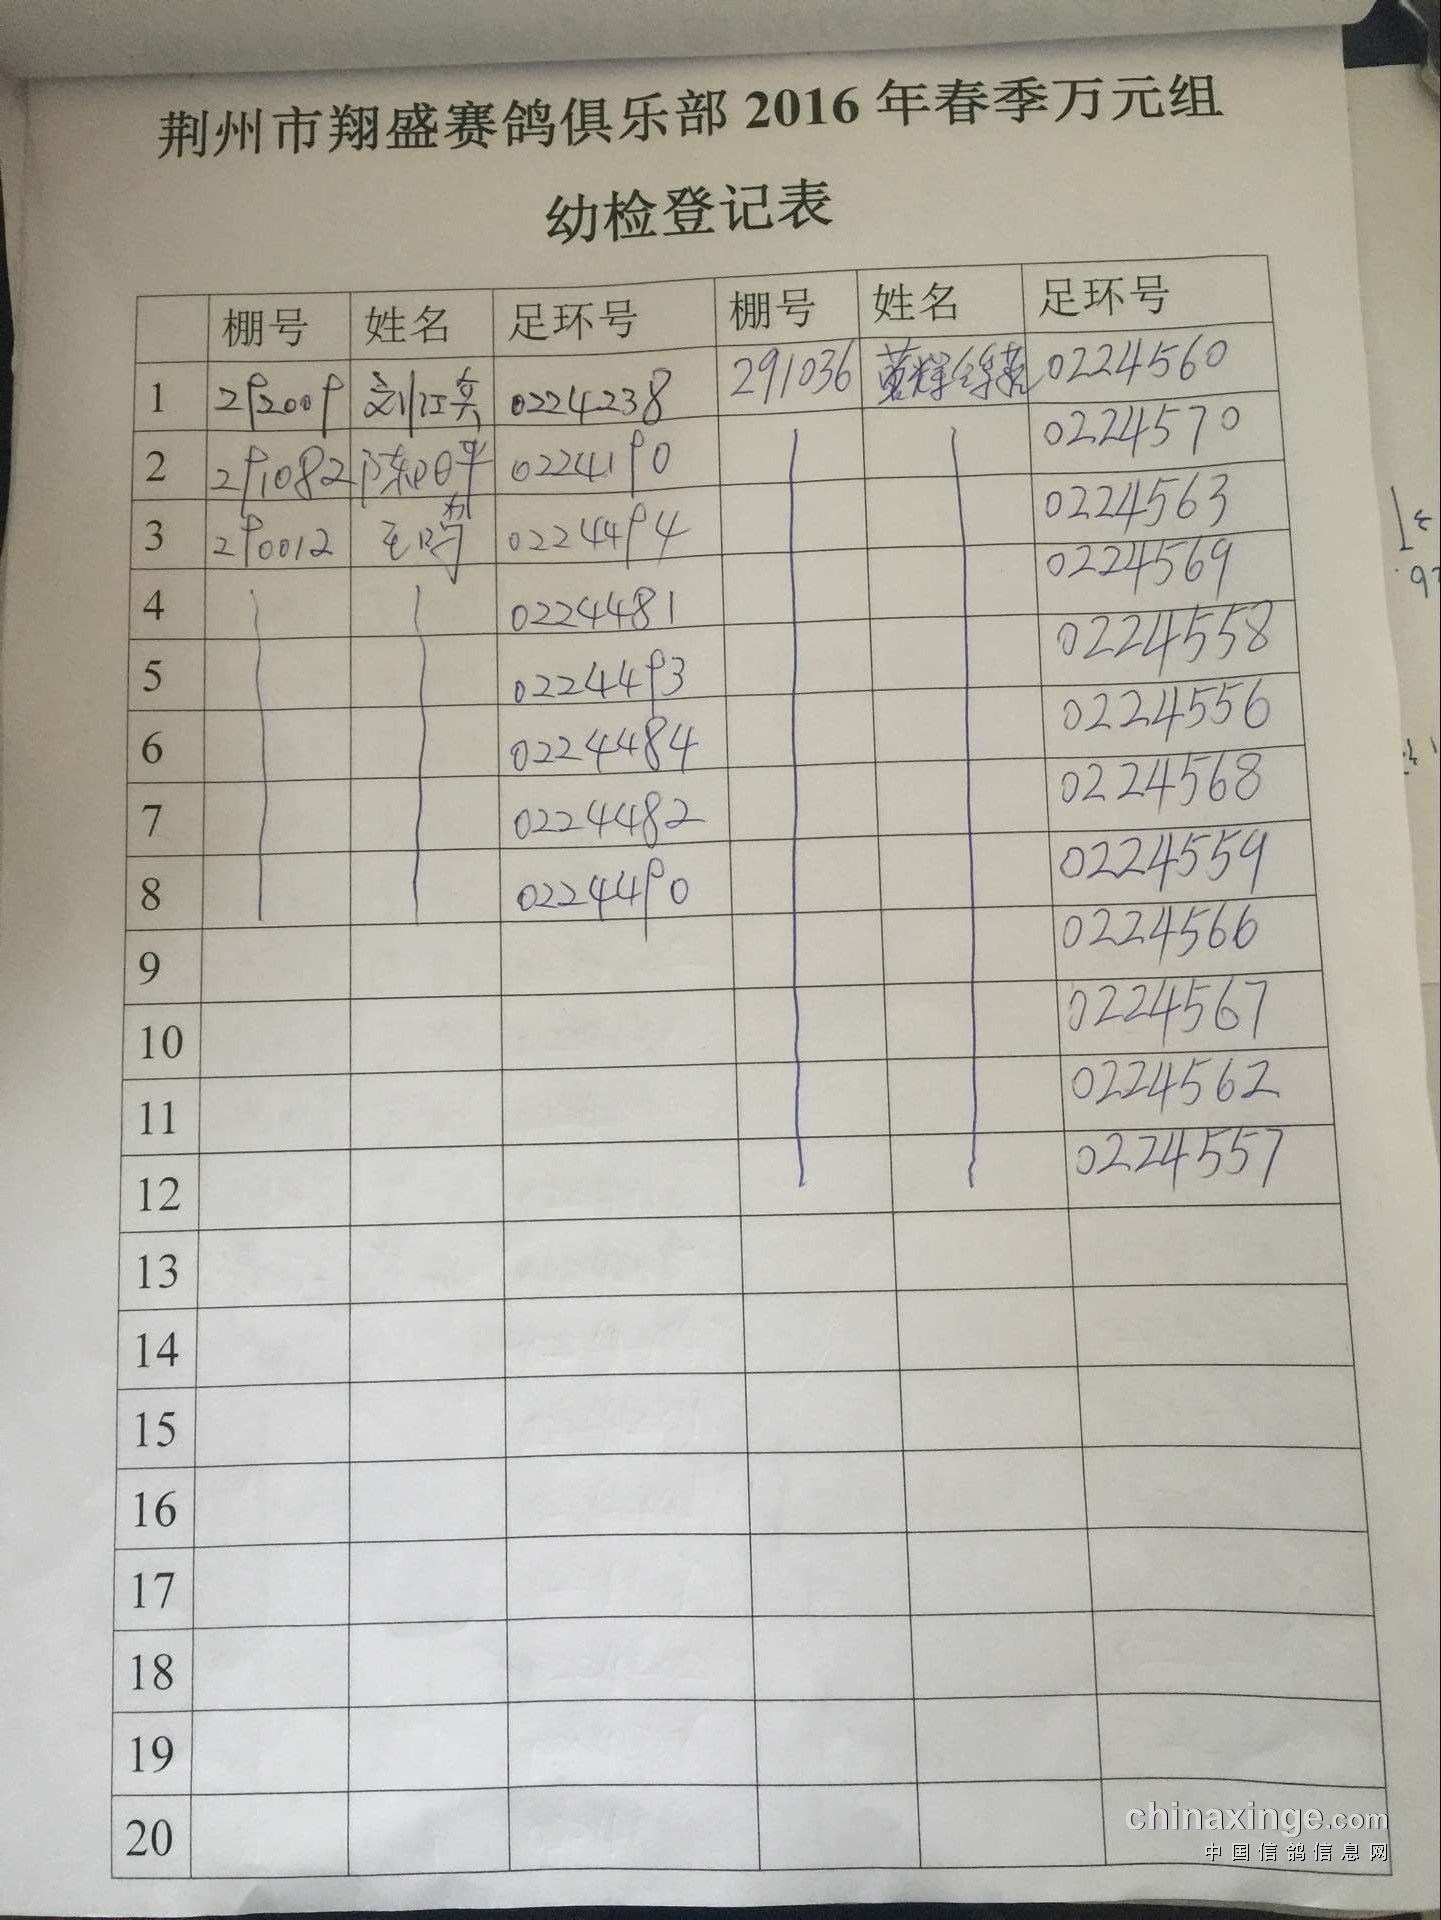 荆州市翔盛赛鸽俱乐部 2016 年春季万元组
幼检登记表
棚号 姓名 足环号 棚号 姓名 足环号
1 292009 刘江兵 0224238 291036 0224560
2 291082 陈日平 0224190 0224570
3 290012 0224494 0224563
4 0224481 0224569
5 0224493 0224558
6 0224484 0224556
7 0224482 0224568
8 0224490 0224559
9 0224566
10 0224567
11 0224562
12 0224557
13
14
15
16
17
18
19
20
chinaxinge.com
中国信鸽信息网